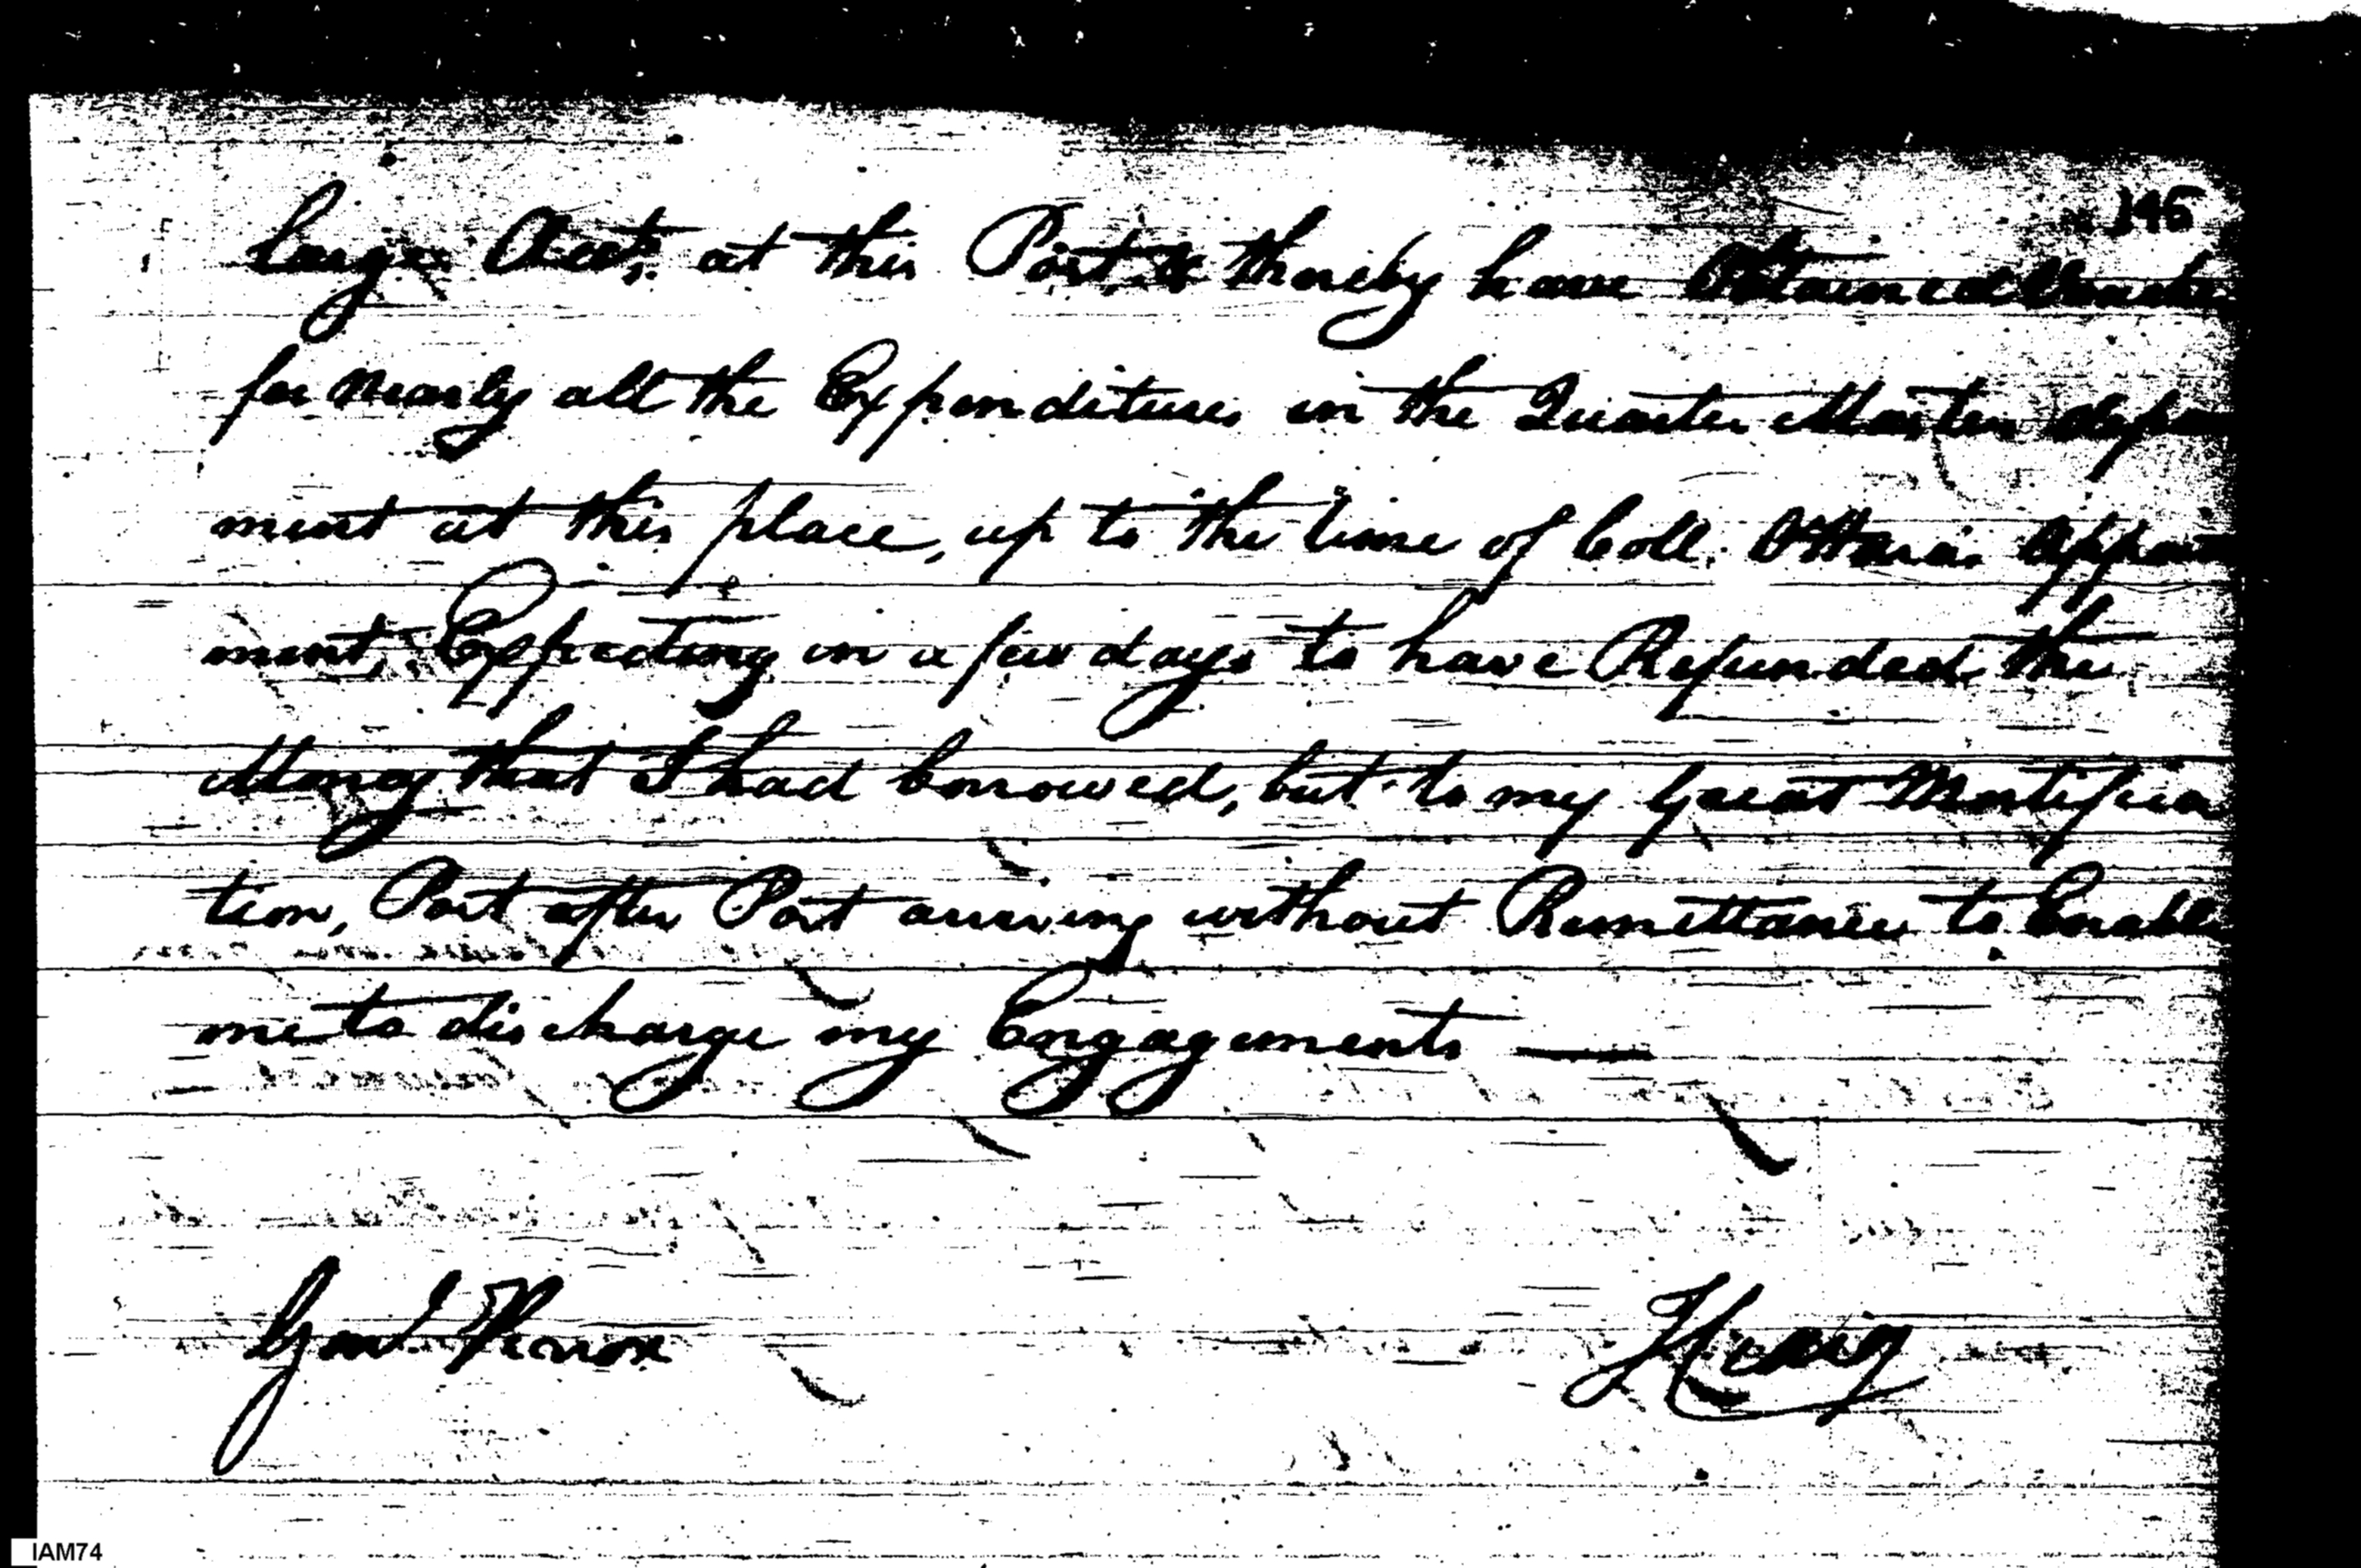 145
large Accts. at this Post, & thereby have Obtained Vouche
for Nearly all the Expenditures in the Quarter Master depa
ment at this place, up to the time of Coll. O'Haras Appoi
ment, Expecting in a few days to have Refunded the
Money that I had borrowed, but to my Great Mortifica
tion, Post after Post arriving without Remittances to Enable
me to discharge my Engagements —
Genl. Knox
ICraig
IAM74